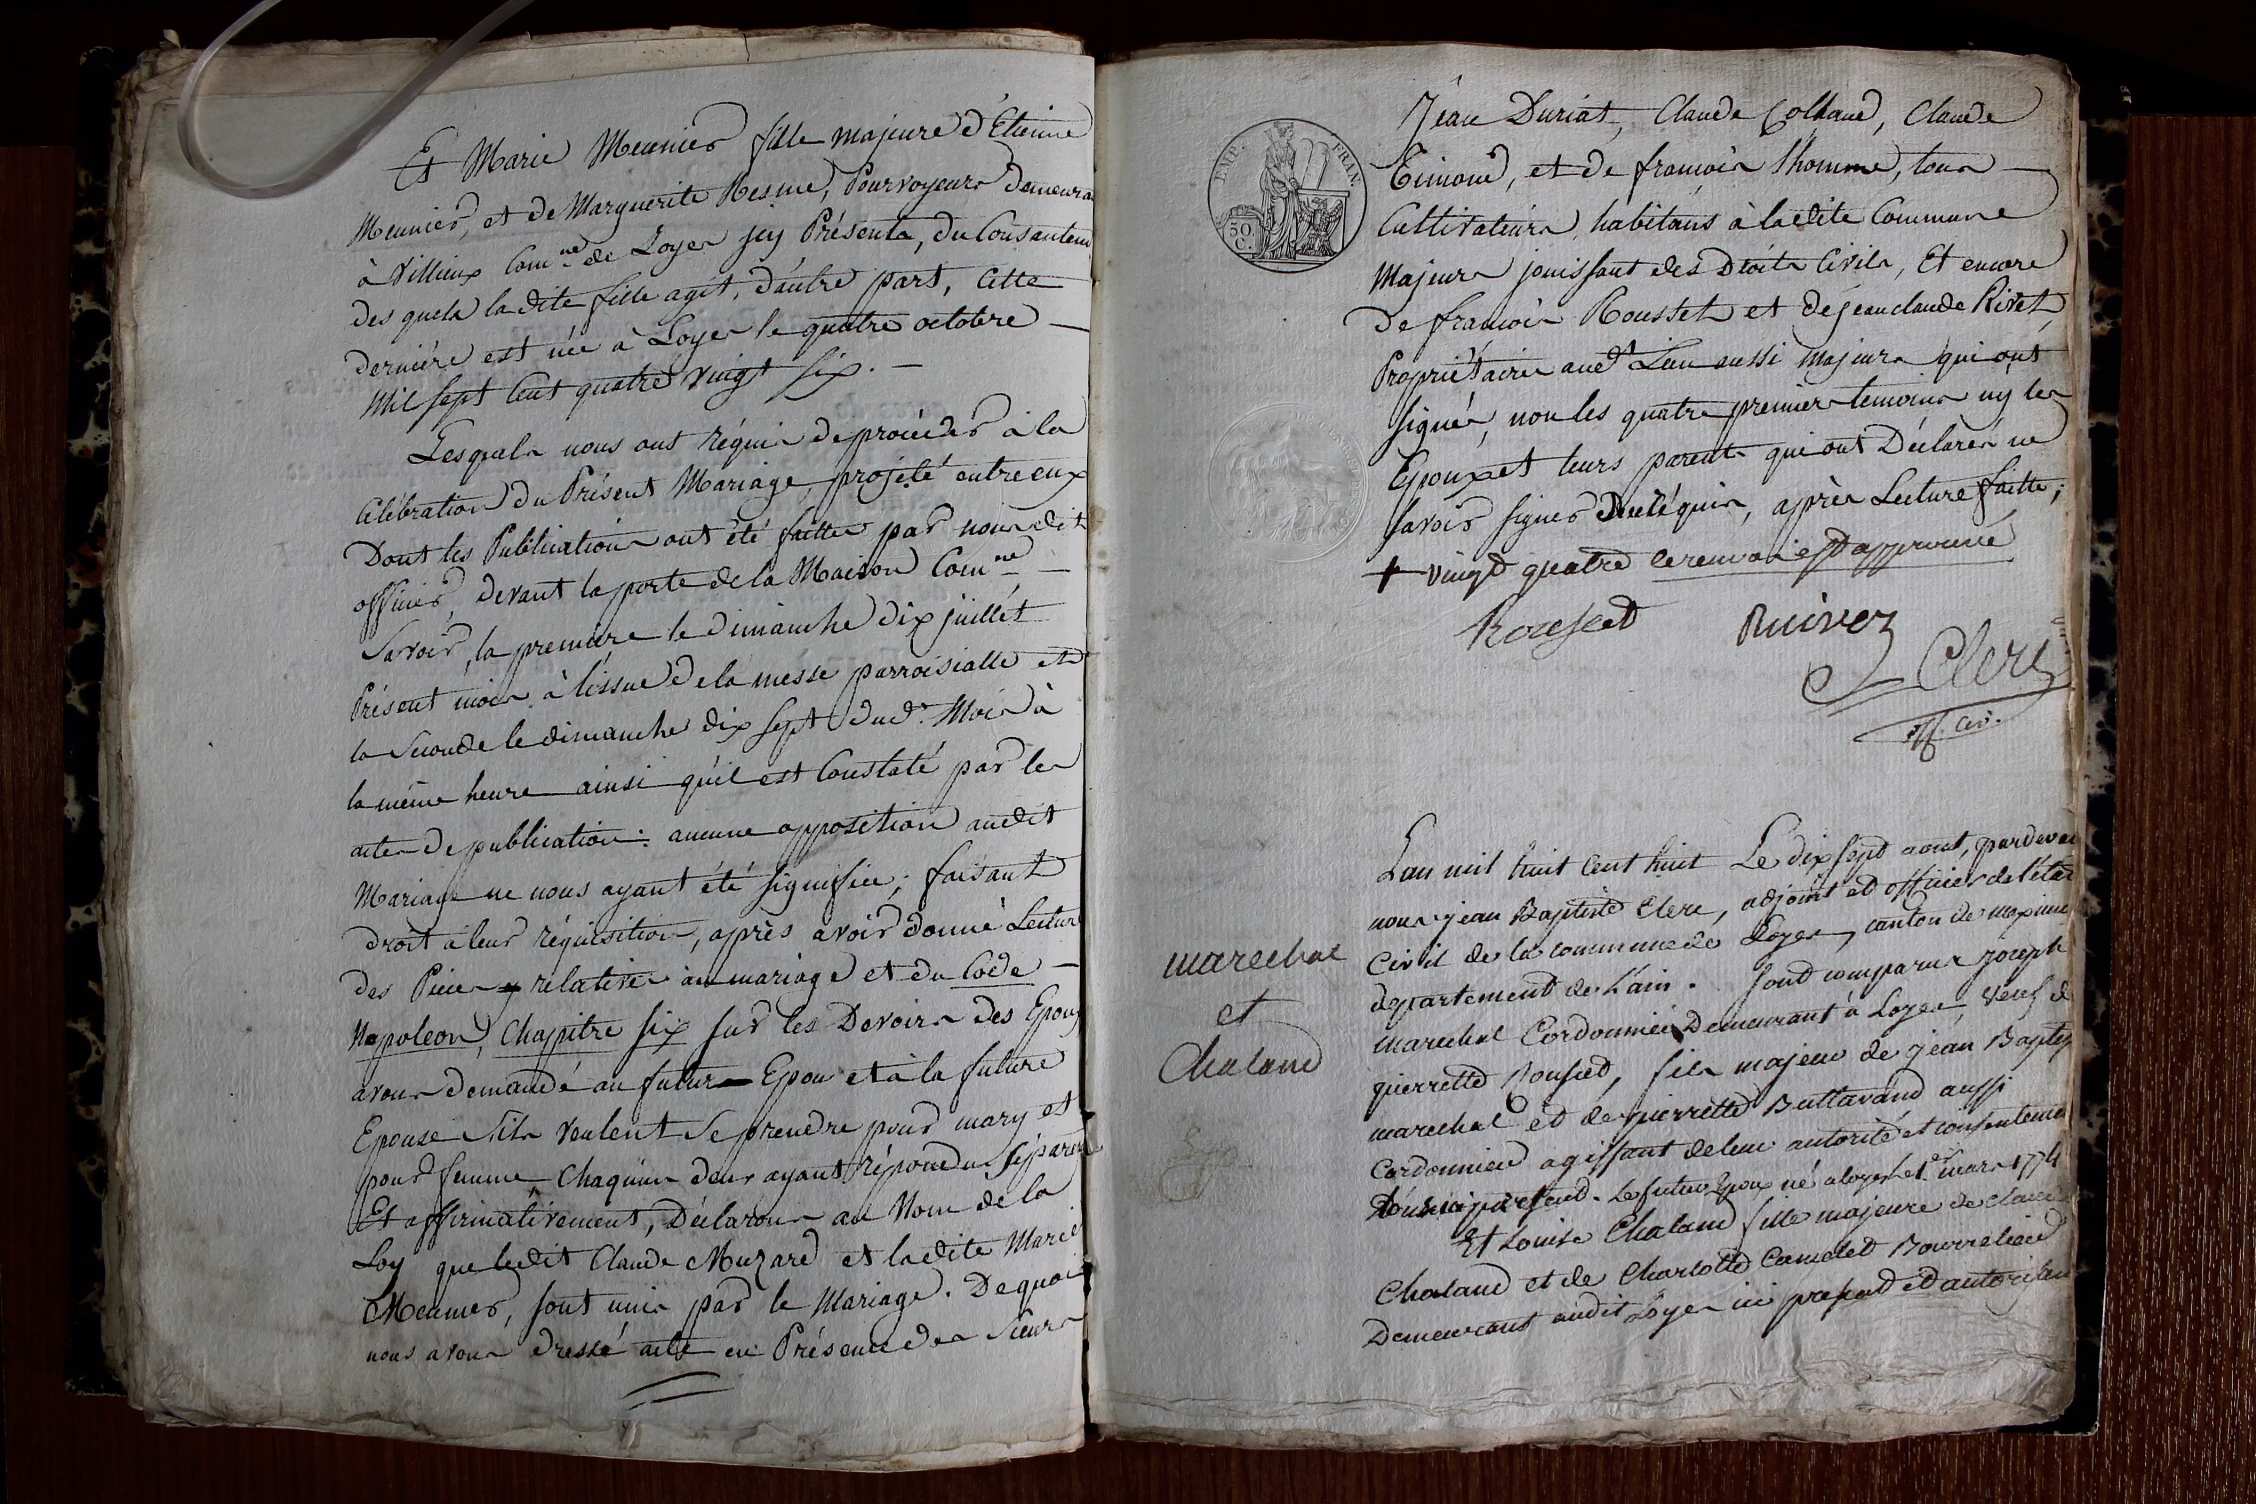 Et Marie Meunier fille majeure d'Etienne
Meunier, et de Marguerite Mesme, Pourvoyeurs demeura
à Villieux Comne de Loyes jcy Présents, du Consantem
des quels la dite fille agit, d'autre part, Cette
dernière est née à Loyes le quatre octobre
Mil sept Cent quatre vingt six.
Lesquels nous ont réquis de procéder à la
Célébration du Présent Mariage projeté entre eux
Dont les Publications ont été faittes par nous dit
officier, devant la porte de la Maison Comne
Savoir, la première le dimanche dix juillet
Présent mois à l'issue de la messe parroisialle et
la Seconde le dimanche dix sept dud. Mois à
la même heure ainsi qu'il est Constaté par les
actes de publication: aucune opposition audit
Mariage ne nous ayant été signifiée; faisant
droit à leur réquisition, après avoir donné Lectur
des Pieces relatives au mariage et du Code
Napoleon, Chapitre six sur les Devoirs des Epoux
avons demandé au futur Epou et à la future
Epouse s'ils veulent se prendre pour mary et
pour femme, Chaqu'un d'eux ayant répondu séparem
Et affirmativement, Déclarons au Nom de la
Loy que ledit Claude Muzard et la dite Marie
Meunier, sont unis par le Mariage. De quoi
nous avons dressé acte en Présence des Sieurs
EMP. FRAN.
50 C.
Jean Duriat, Claude Colland, Claude
Eimond, et de francois Thomme, tous
Cultivateurs, habitans à la dite Commune
Majeurs jouissant des Droits Civils, Et encore
de francois Rousset et de jean claude Rivet,
Propriétaires aud. Lieu aussi majeurs qui ont
signés, non les quatre premiers temoins ny les
Epoux et leurs parents qui ont Déclarés ne
savoir signer De ce réquis, après Lecture faitte;
+ vingt quatre le renvoi est approuvé
Rousset Ruivet
Clerc
off. civ.
marechal
et
Chaland
L'an mil huit Cent huit Le dix sept aout, pardeva
nous jean Baptiste Clerc, adjoint et officier de l'état
Civil de la commune de Loyes, canton de maximie
departement de L'ain. sont comparus joseph
marechal Cordonnier Demeurant à Loyes, veuf de
pierrette Rousset, fils majeur de jean Baptis
marechal et de pierrette Buttavand aussi
Cordonnier agissant de leur autorité et consenteme
présent. le futur Epoux né a loyes le 1er mars 1774
Et Louise Chaland fille majeure de Claude
Chaland et de Charlotte Camelet Bourrelier
Demeurant audit Loyes ici present et autorisan